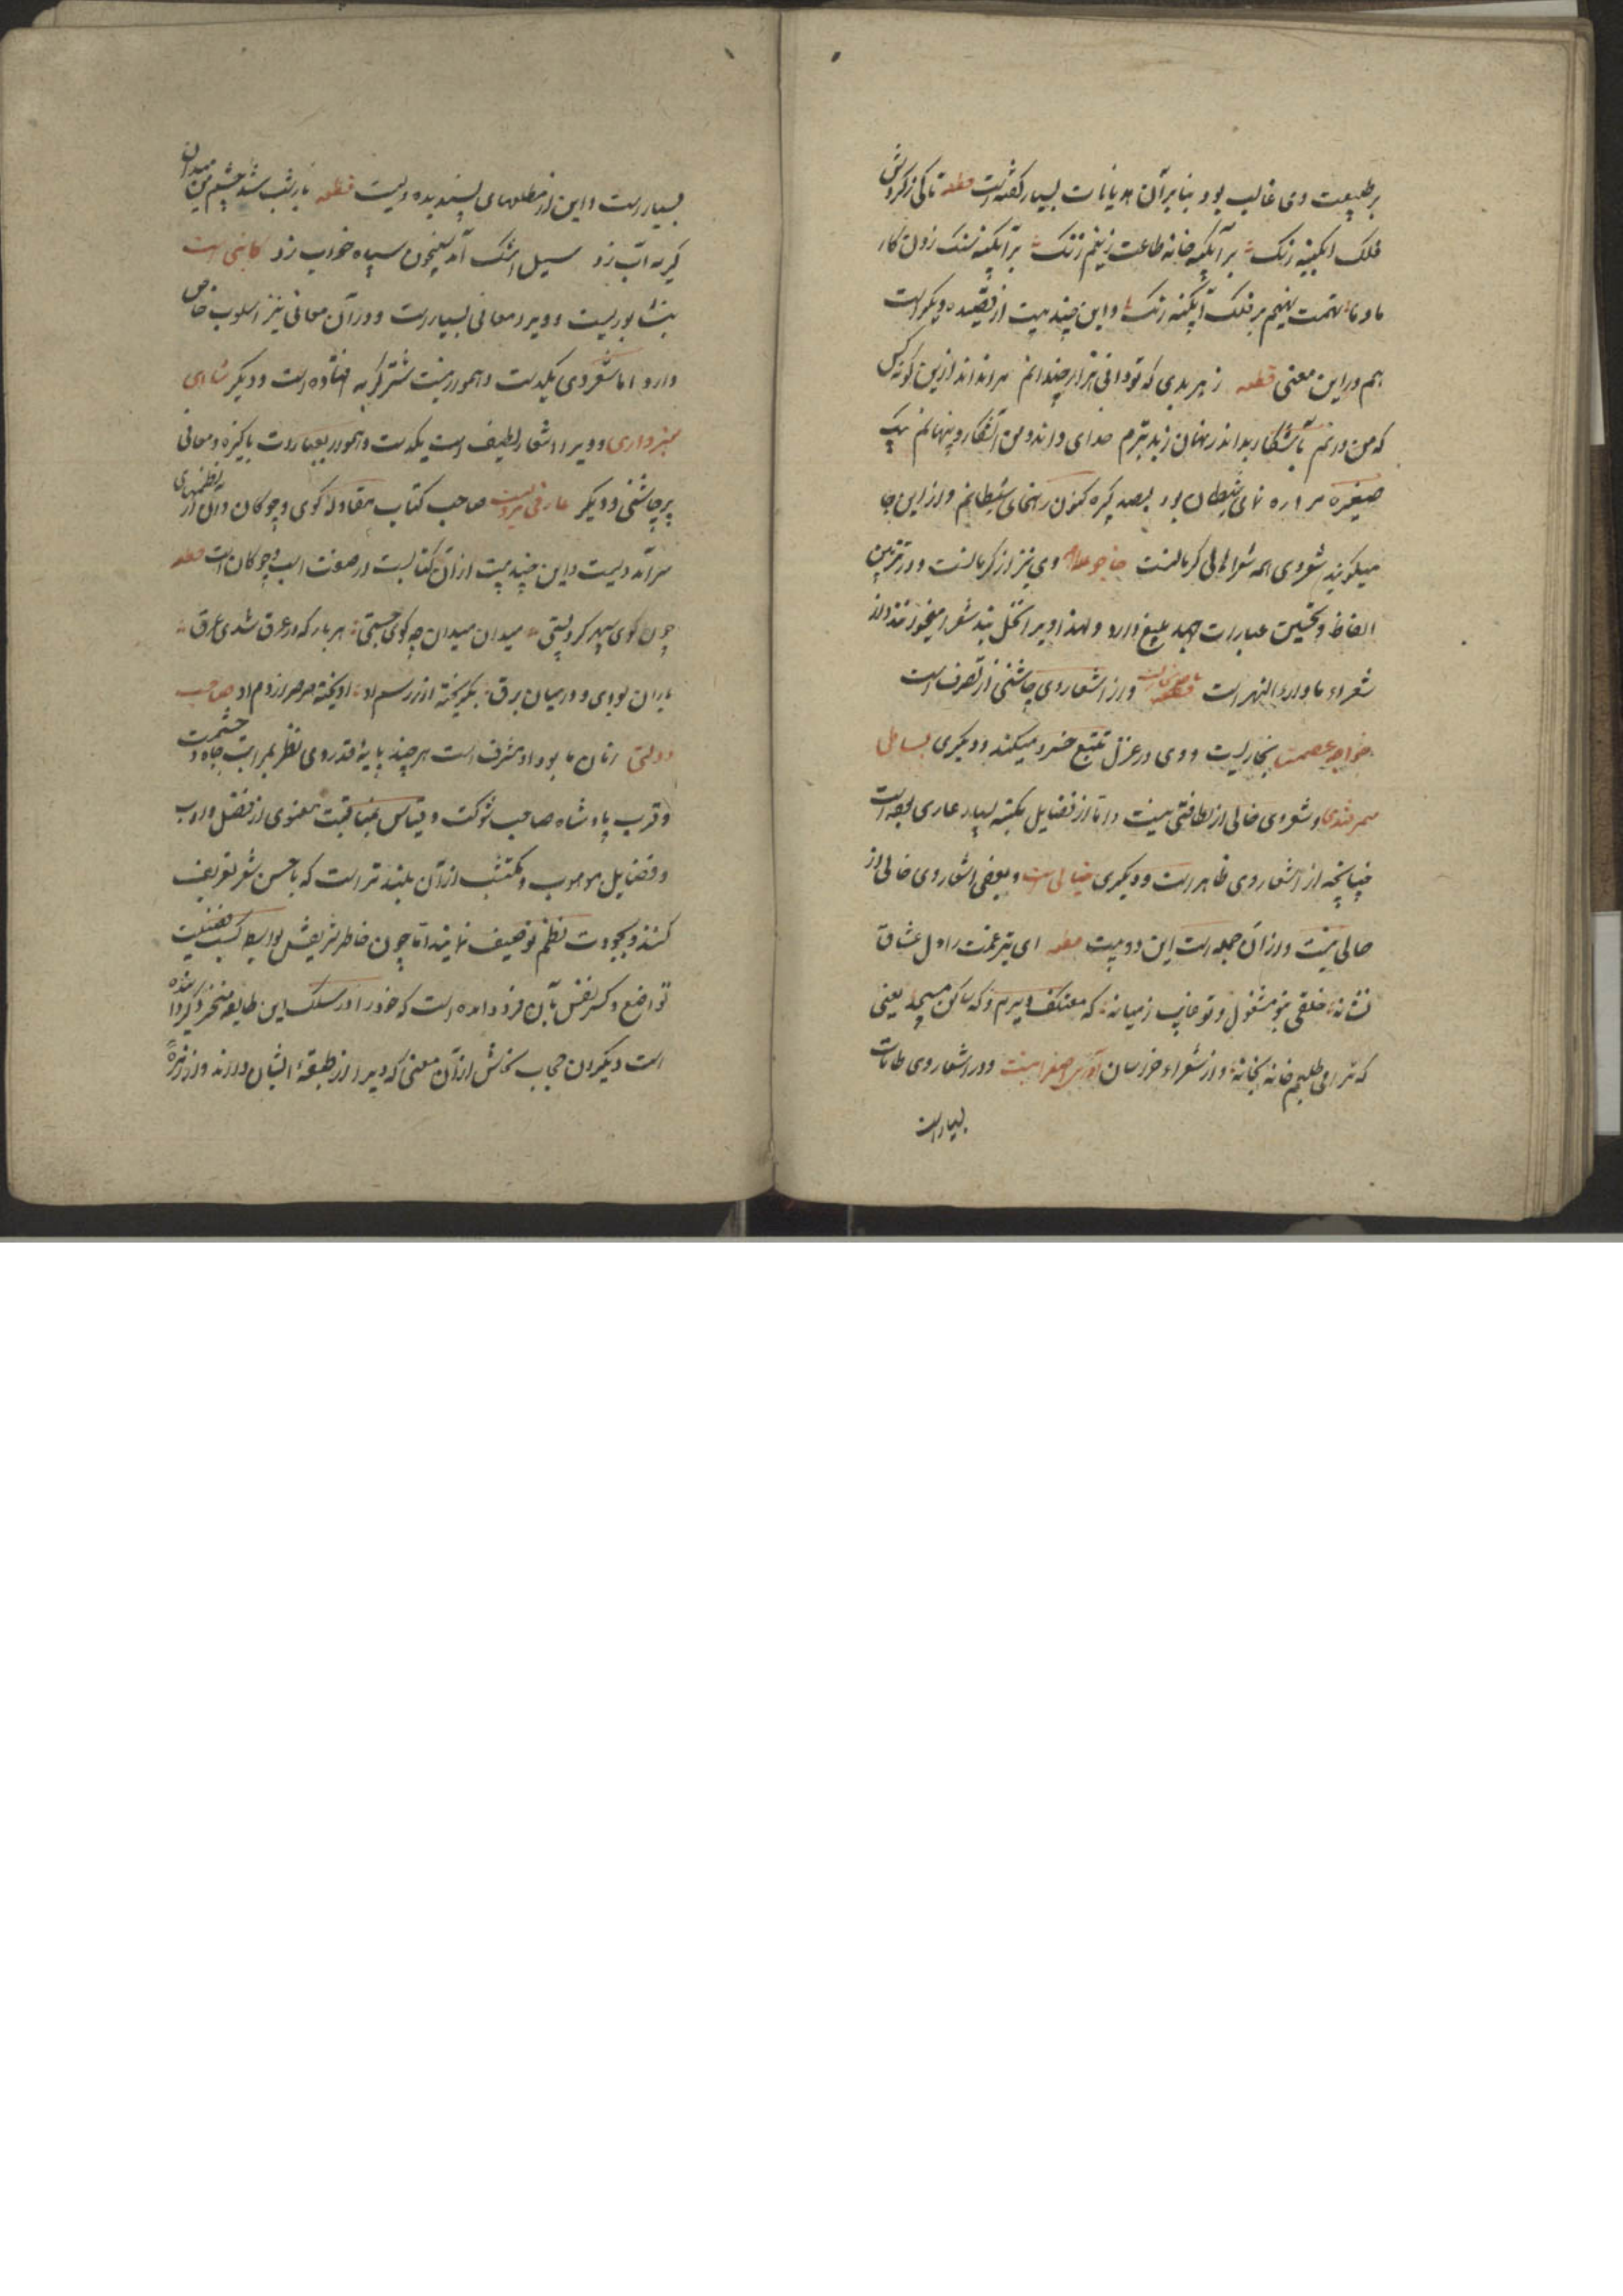 بر طبیعت وی غالب بود بنا برآن هدیانات بسیار گفته است قطعه تاکی ز گردش
فلک آبگینه رنگ بر آبگینه خانه طاعت زنیم سنگ بر آبگینه سنگ زدن کار
ما و ما تهمت نهیم بر فلک آبگینه رنگ و این چند بیت از قصیده دیگر است
هم در این معنی قطعه ز هر بدی که تو دانی هزار چندانم مرا نداند ازین گونه کس
که من دانم بآشکار بدم در نهان ز بد بترم خدای داند و من آشکار و پنهانم بیک
صغیره مرا ره نمای شیطان بود بصد کبیره کنون رهنمای شیطانم و از این جا
میگویند شعر وی همه شعرا خواجو وی نیز از کرمانست و در تزیین
الفاظ و تحسین عبارات جهد بلیغ دارد و لهذا ویرا نخل بند شعرا میخوانند و از
شعراء ماوراء النهر است و در اشعار وی چاشنی از تصرف است
خواجه عصمت بخاریست و وی در غزل تتبع خسرو میکند و دیگری بساطی
سمرقندی و شعر وی خالی از لطافتی نیست و اما از فضایل مکتسبه بسیار عاری بوده است
چنانچه از اشعار وی ظاهر است و دیگری خیالی است و بعضی اشعار وی خالی از
حالی نیست و از آن جمله است این دو بیت قطعه ای تیر غمت را دل عشاق
نشانه خلقی بتو مشغول و تو غایب ز میانه که معتکف دیرم و که ساکن مسجد یعنی
که ترا می طلبم خانه بخانه و از شعراء خراسان آذری اسفراینیست و در اشعار وی طامات
بسیار است
بسیار است و این از مطلعهای پسندیده ویست قطعه باز شب شد چشم من میدان
گریه آب زد سیل اشک آمد شبیخون سپاه خواب زد کاتبی است
نیشابوریست و ویرا معانی بسیار است و در آن معانی نیز اسلوب خاص
دارد اما شعر وی یکدست و هموار نیست شتر گربه افتاده است و دیگر شاهی
سبزواری و ویرا اشعار لطیف است یکدست و هموار بعبارات پاکیزه و معانی
پر چاشنی و دیگر عارفی صاحب کتاب مقاوله گوی و چوگان و آن از نظمهای
سرآمد ویست و این چند بیت از آن کتابست در صفت اسب و چوگان است قطعه
چون گوی سپهر میدان میدان چو گوی جستی هر بار که در عرق شدی غرق
باران بودی و در میان برق بگریخته از سم او آویخته صرصر از دم او صاحب
دولتی زمان ما بود او مشرف است هر چند پایه قدر وی نظر بمراتب جاه و حشمت
و قرب پادشاه صاحب شوکت و قیاس معنوی از فضل و ادب
و فضایل موهوب و مکتسب از آن بلند تر است که با حسن شعر تعریف
کنند و بجودت نظم توصیف نمایند اما چون خاطر شریفش بواسطه کسب فضیلت
تواضع و کسر نفس بآن فرود آمده است که خود را در سلک این طایفه منخرط گردانیده
است دیگران حجاب از آن معنی که ویرا از طبقه ایشان دارند و از زمره